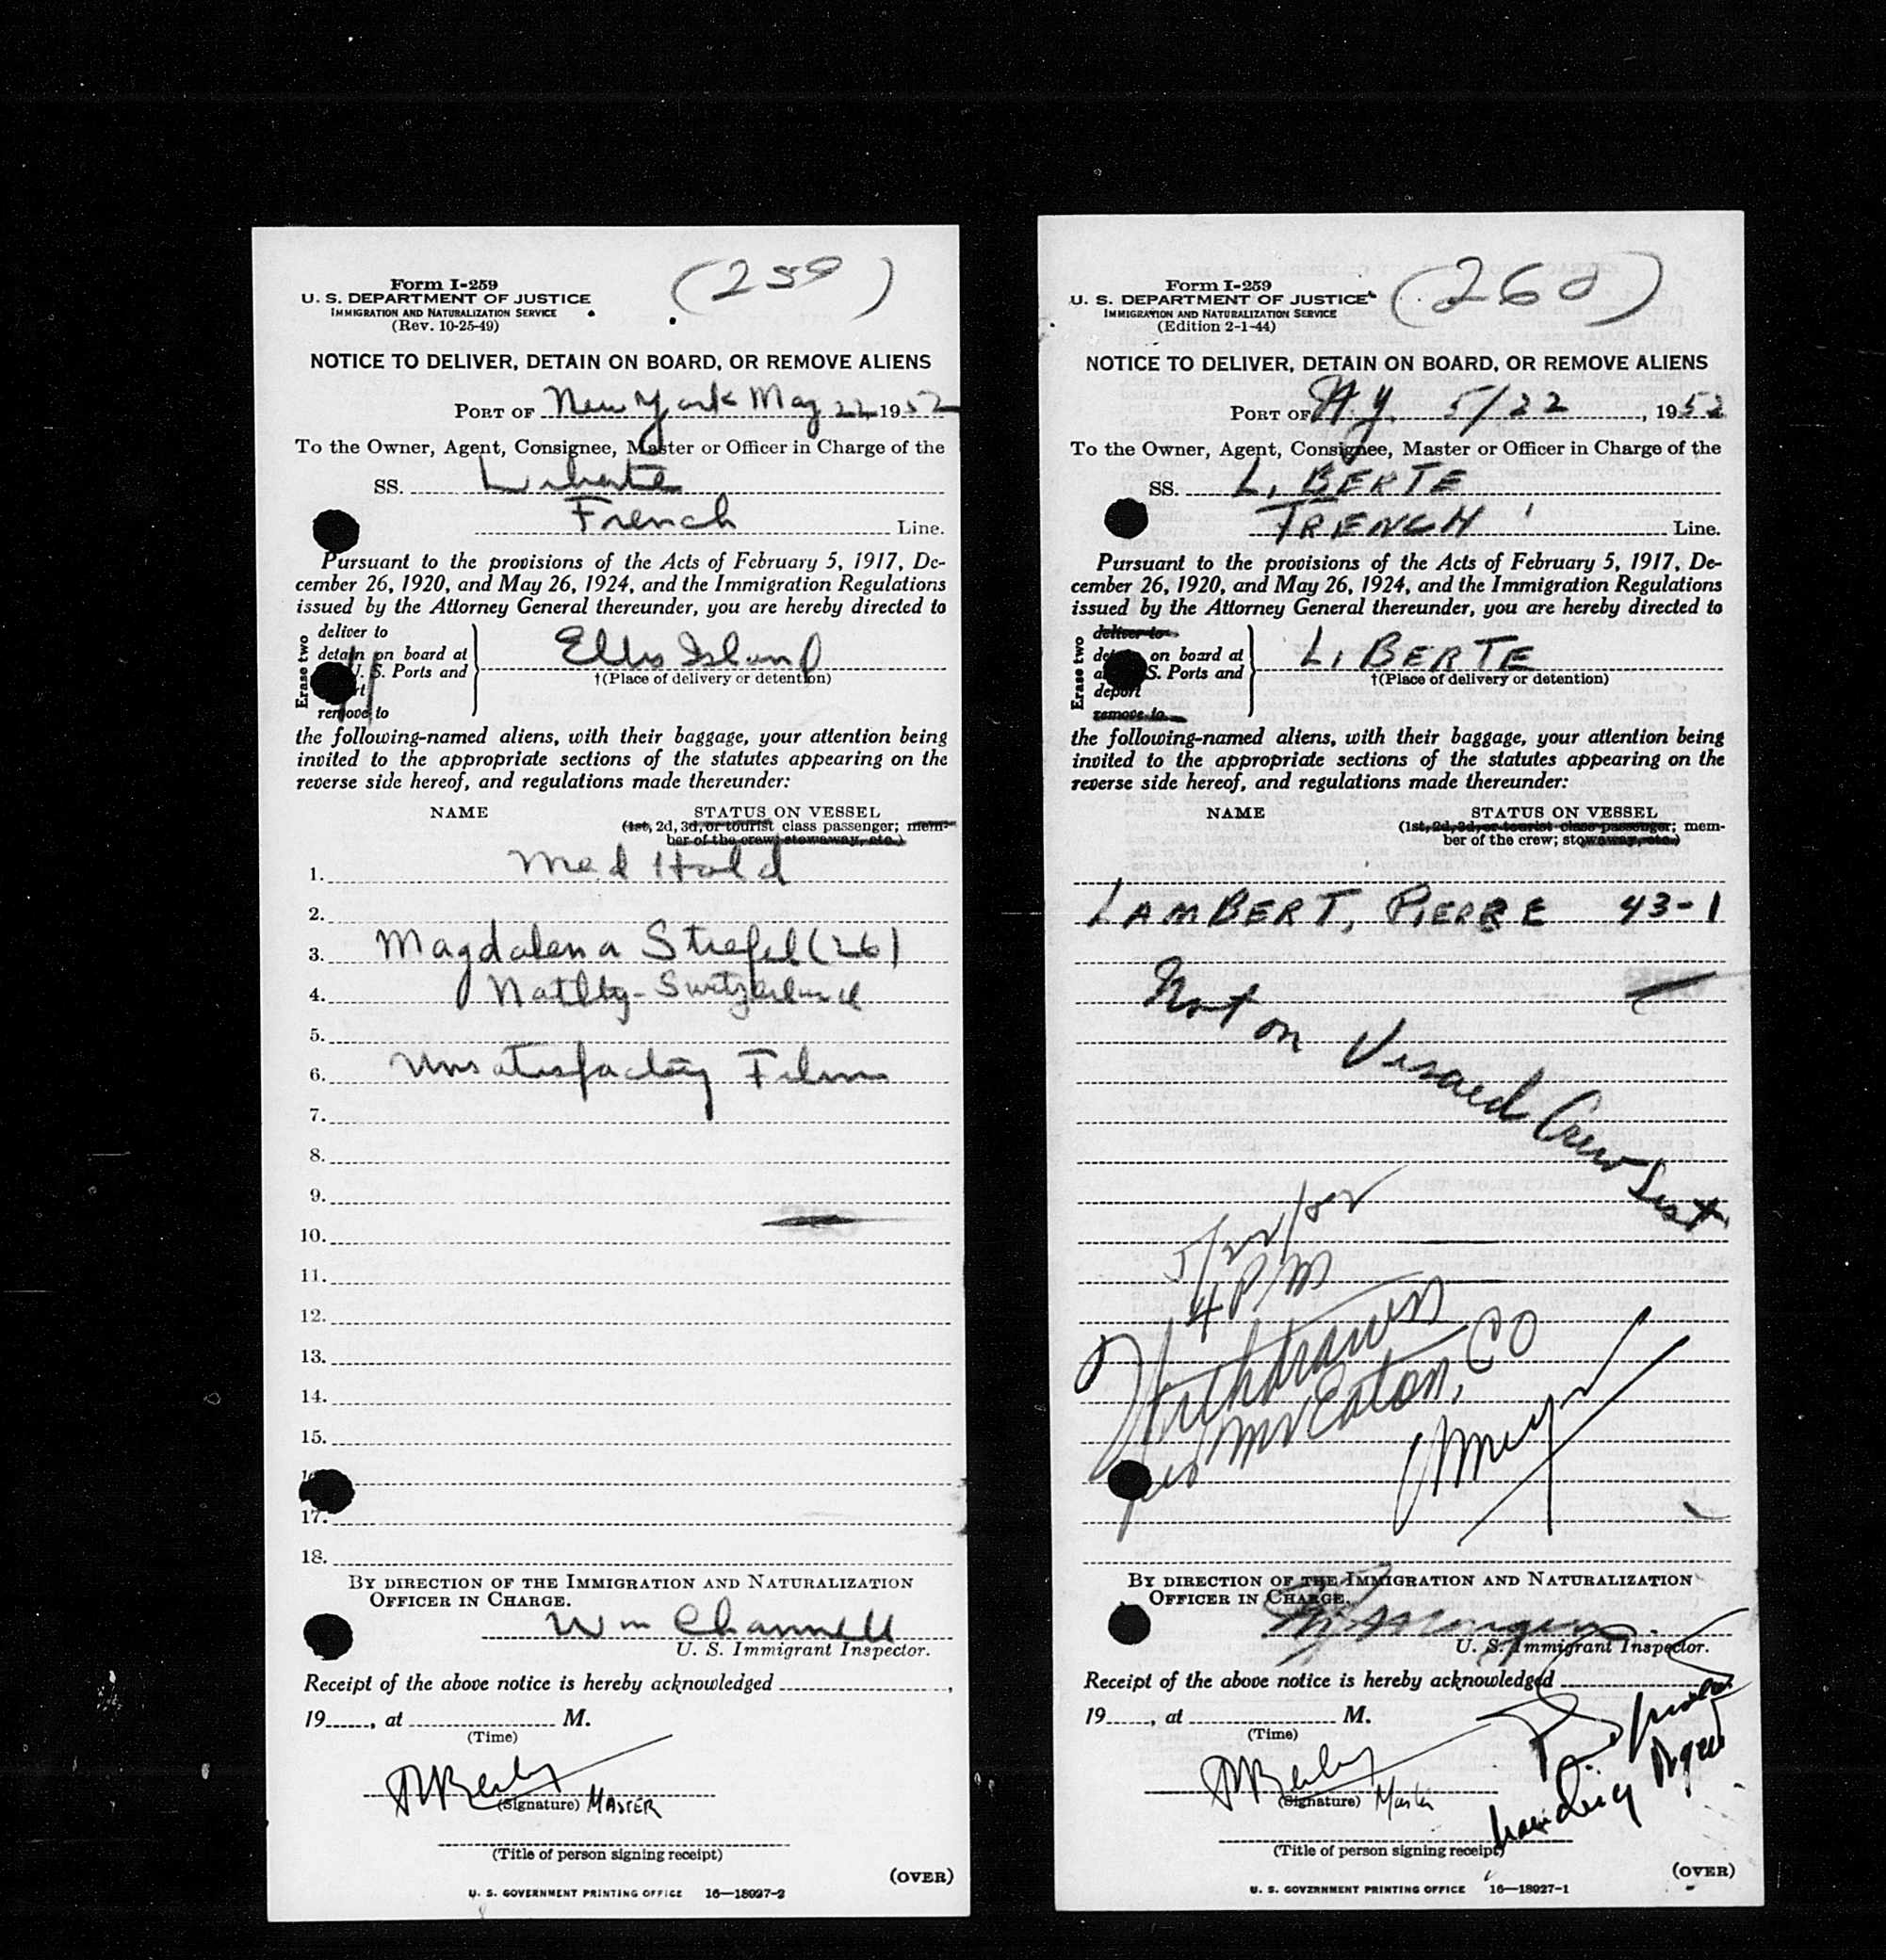 (259)
Form I-259
U. S. DEPARTMENT OF JUSTICE
IMMIGRATION AND NATURALIZATION SERVICE
(Rev. 10-25-49)
NOTICE TO DELIVER, DETAIN ON BOARD, OR REMOVE ALIENS
PORT OF New York May 22, 1952
To the Owner, Agent, Consignee, Master or Officer in Charge of the
SS. Liberte
French Line.
Pursuant to the provisions of the Acts of February 5, 1917, De-
cember 26, 1920, and May 26, 1924, and the Immigration Regulations
issued by the Attorney General thereunder, you are hereby directed to
Erase two
deliver to
detain on board at
U. S. Ports and
remove to
Ellis Island
†(Place of delivery or detention)
the following-named aliens, with their baggage, your attention being
invited to the appropriate sections of the statutes appearing on the
reverse side hereof, and regulations made thereunder:
NAME STATUS ON VESSEL
(1st, 2d, 3d, or tourist class passenger; mem-
ber of the crew; stowaway, etc.)
1. Med Hold
2.
3. Magdalena (26)
4. Switzerland
5.
6. Unsatisfactory Films
7.
8.
9.
10.
11.
12.
13.
14.
15.
17.
18.
BY DIRECTION OF THE IMMIGRATION AND NATURALIZATION
OFFICER IN CHARGE.
Wm Channell
U. S. Immigrant Inspector.
Receipt of the above notice is hereby acknowledged ,
19 , at M.
(Time)
(Signature) MASTER
(Title of person signing receipt)
(OVER)
U. S. GOVERNMENT PRINTING OFFICE 16—18027-2
(260)
Form I-259
U. S. DEPARTMENT OF JUSTICE
IMMIGRATION AND NATURALIZATION SERVICE
(Edition 2-1-44)
NOTICE TO DELIVER, DETAIN ON BOARD, OR REMOVE ALIENS
PORT OF N.Y. 5/22, 1952
To the Owner, Agent, Consignee, Master or Officer in Charge of the
SS. LIBERTE
FRENCH Line.
Pursuant to the provisions of the Acts of February 5, 1917, De-
cember 26, 1920, and May 26, 1924, and the Immigration Regulations
issued by the Attorney General thereunder, you are hereby directed to
Erase two
deliver to
on board at
S. Ports and
deport
remove to
LIBERTE
†(Place of delivery or detention)
the following-named aliens, with their baggage, your attention being
invited to the appropriate sections of the statutes appearing on the
reverse side hereof, and regulations made thereunder:
NAME STATUS ON VESSEL
(1st, 2d, 3d, or tourist class passenger; mem-
ber of the crew; stowaway, etc.)
LAMBERT, PIERRE 43-1
Not on Visaed Crew List
5/22/52
4 PM
Withdrawn
per Mr Eaton, CO
BY DIRECTION OF THE IMMIGRATION AND NATURALIZATION
OFFICER IN CHARGE.
U. S. Immigrant Inspector.
Receipt of the above notice is hereby acknowledged
19 , at M.
(Time)
(Signature) Master
(Title of person signing receipt)
(OVER)
U. S. GOVERNMENT PRINTING OFFICE 16—18027-1